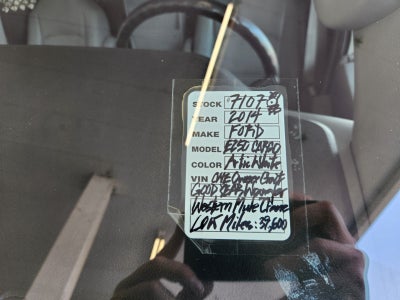 STOCK 7107
YEAR 2014
MAKE FORD
MODEL E250 CARGO
COLOR Artic White
VIN ONE Owner
GOOD
Western
LOW Miles: 39,600